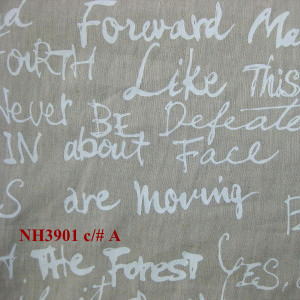 Forward Ma
FOURTH Like This
Never BE Defeate
IN about Face
S are Moving
NH3901 c/# A
The Forest YES,